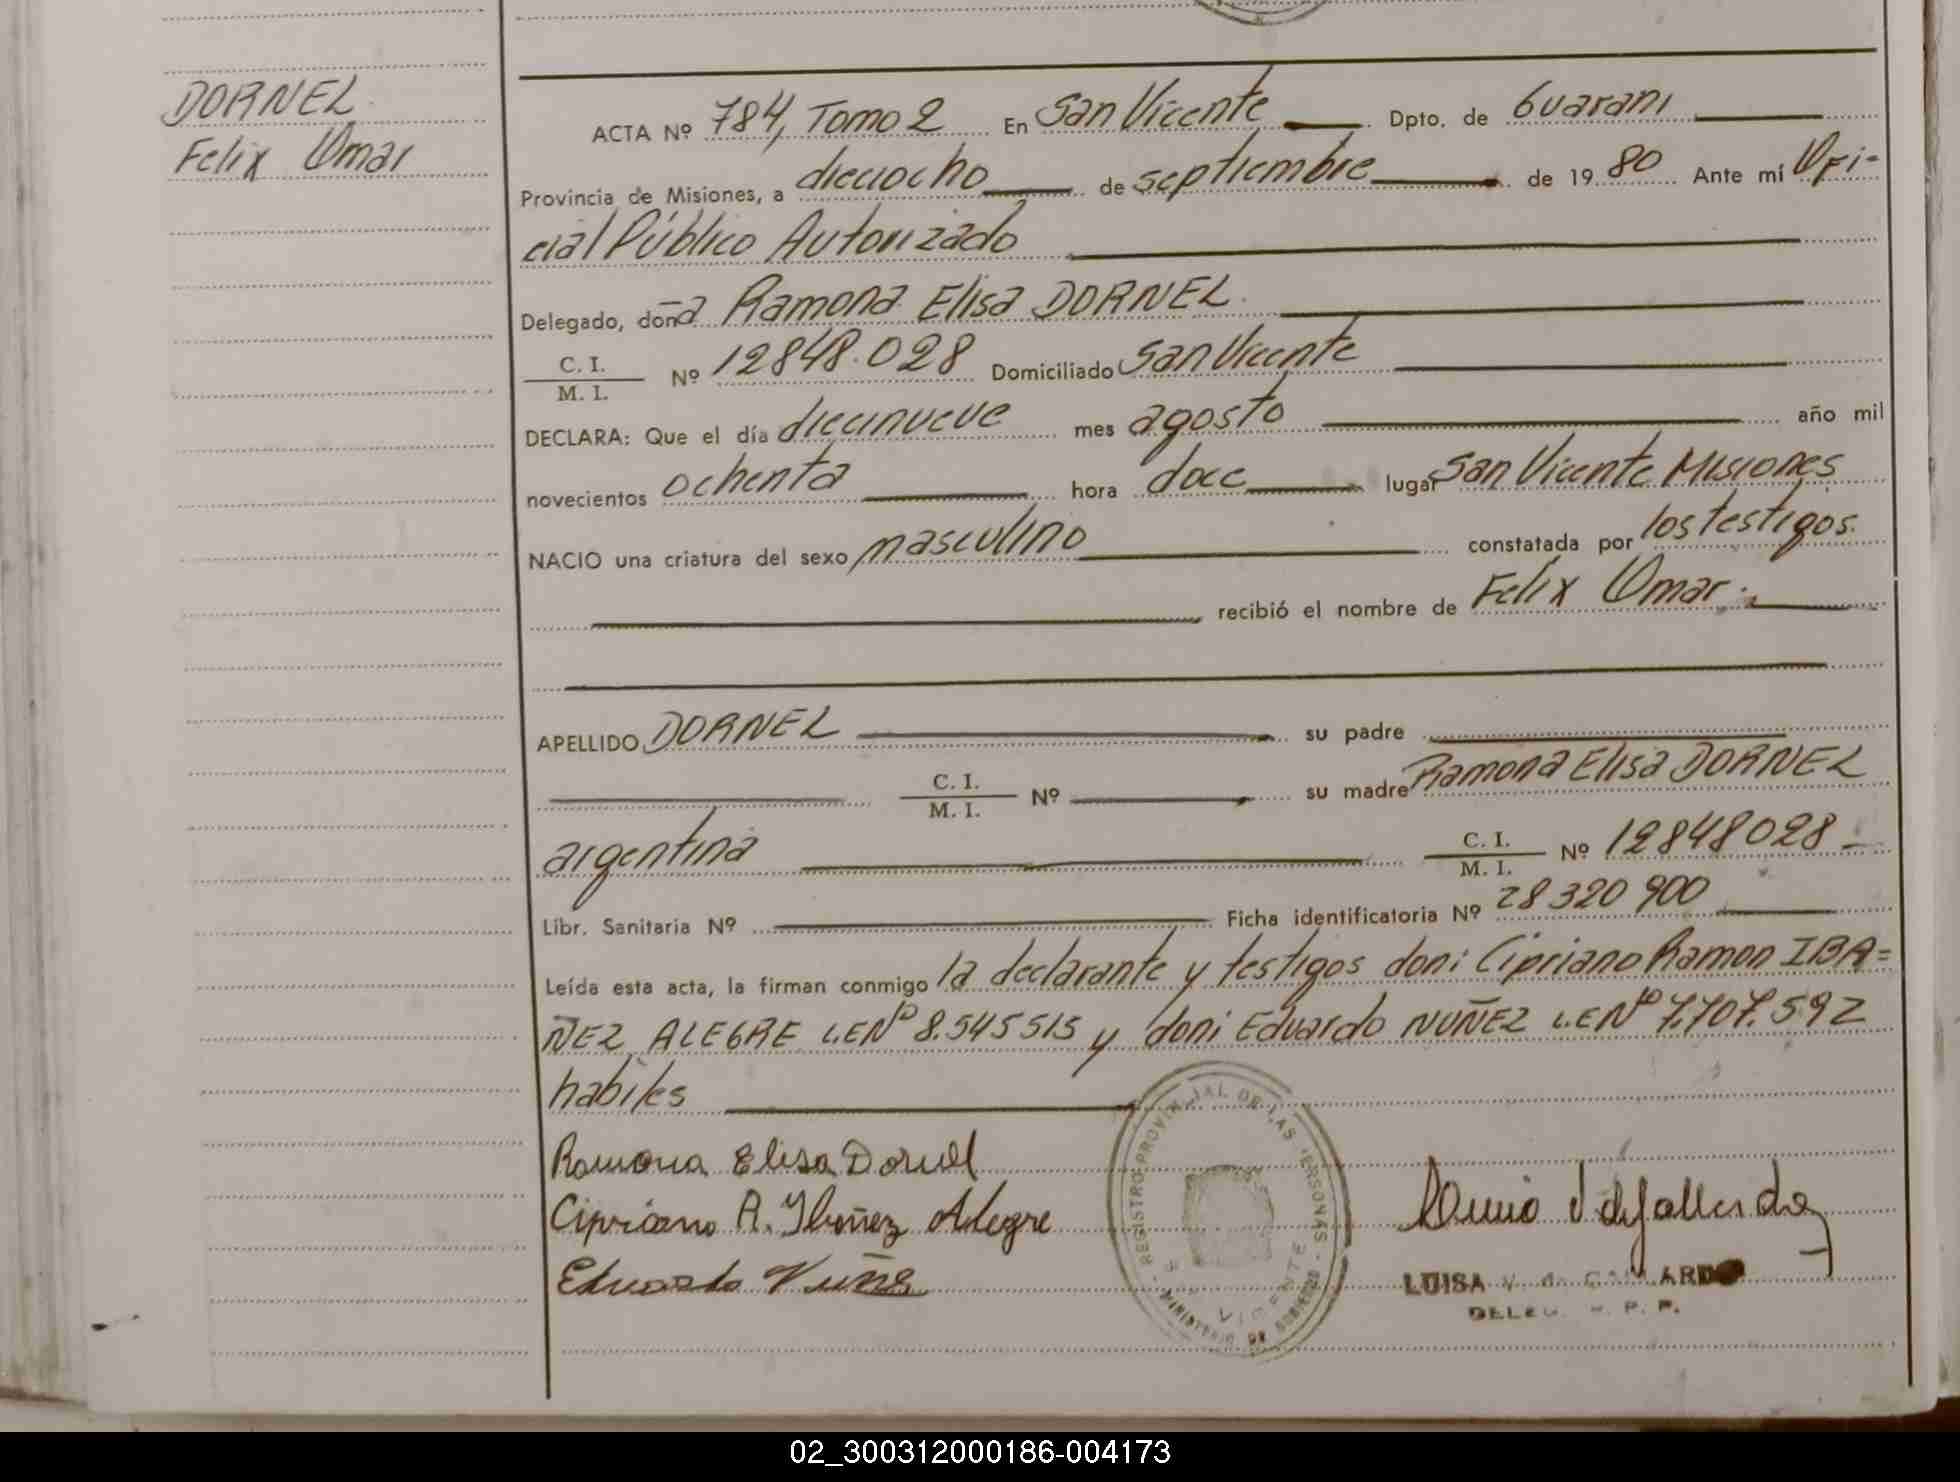 DORNEL
Felix Omar
ACTA Nº 784, Tomo 2 En San Vicente Dpto. de Guarani
Provincia de Misiones, a dieciocho de septiembre de 1980 Ante mí Ofi=
cial Público Autorizado
Delegado, donã Ramona Elisa DORNEL
C. I.
M. I. Nº 12848.028 Domiciliado San Vicente
DECLARA: Que el día diecinueve mes agosto año mil
novecientos ochenta hora doce lugar San Vicente Misiones
NACIO una criatura del sexo masculino constatada por los testigos.
recibió el nombre de Felix Omar.
APELLIDO DORNEL su padre
C. I.
M. I. Nº su madre Ramona Elisa DORNEL
argentina C. I.
M. I. Nº 12848028
Libr. Sanitaria Nº Ficha identificatoria Nº 28320900
Leída esta acta, la firman conmigo la declarante y testigos don: Cipriano Ramon IBA=
ÑEZ ALEGRE L.E Nº 8.545515 y don: Eduardo NUÑEZ L.E Nº 7.707.592
habiles
Ramona Elisa Dornel
Cipriano R. Ibañez Alegre
Eduardo Nuñez
REGISTRO PROVINCIAL DE LAS PERSONAS
MINISTERIO DE GOBIERNO
VICENTE
LUISA V. de
02_300312000186-004173